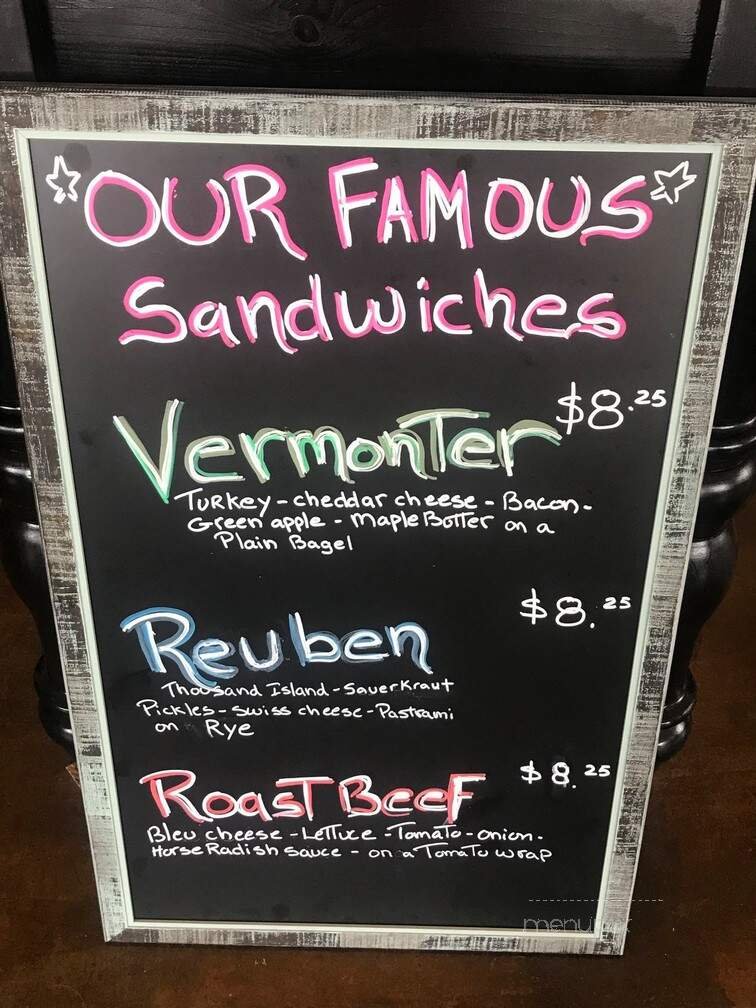 OUR FAMOUS
Sandwiches
Vermonter $8.25
Turkey - cheddar cheese - Bacon -
Green apple - Maple Butter on a
Plain Bagel
Reuben $8.25
Thousand Island - Sauerkraut
Pickles - Swiss cheese - Pastrami
on Rye
Roast Beef $8.25
Bleu cheese - Lettuce - Tomato - onion -
Horse Radish Sauce - on a Tomato wrap